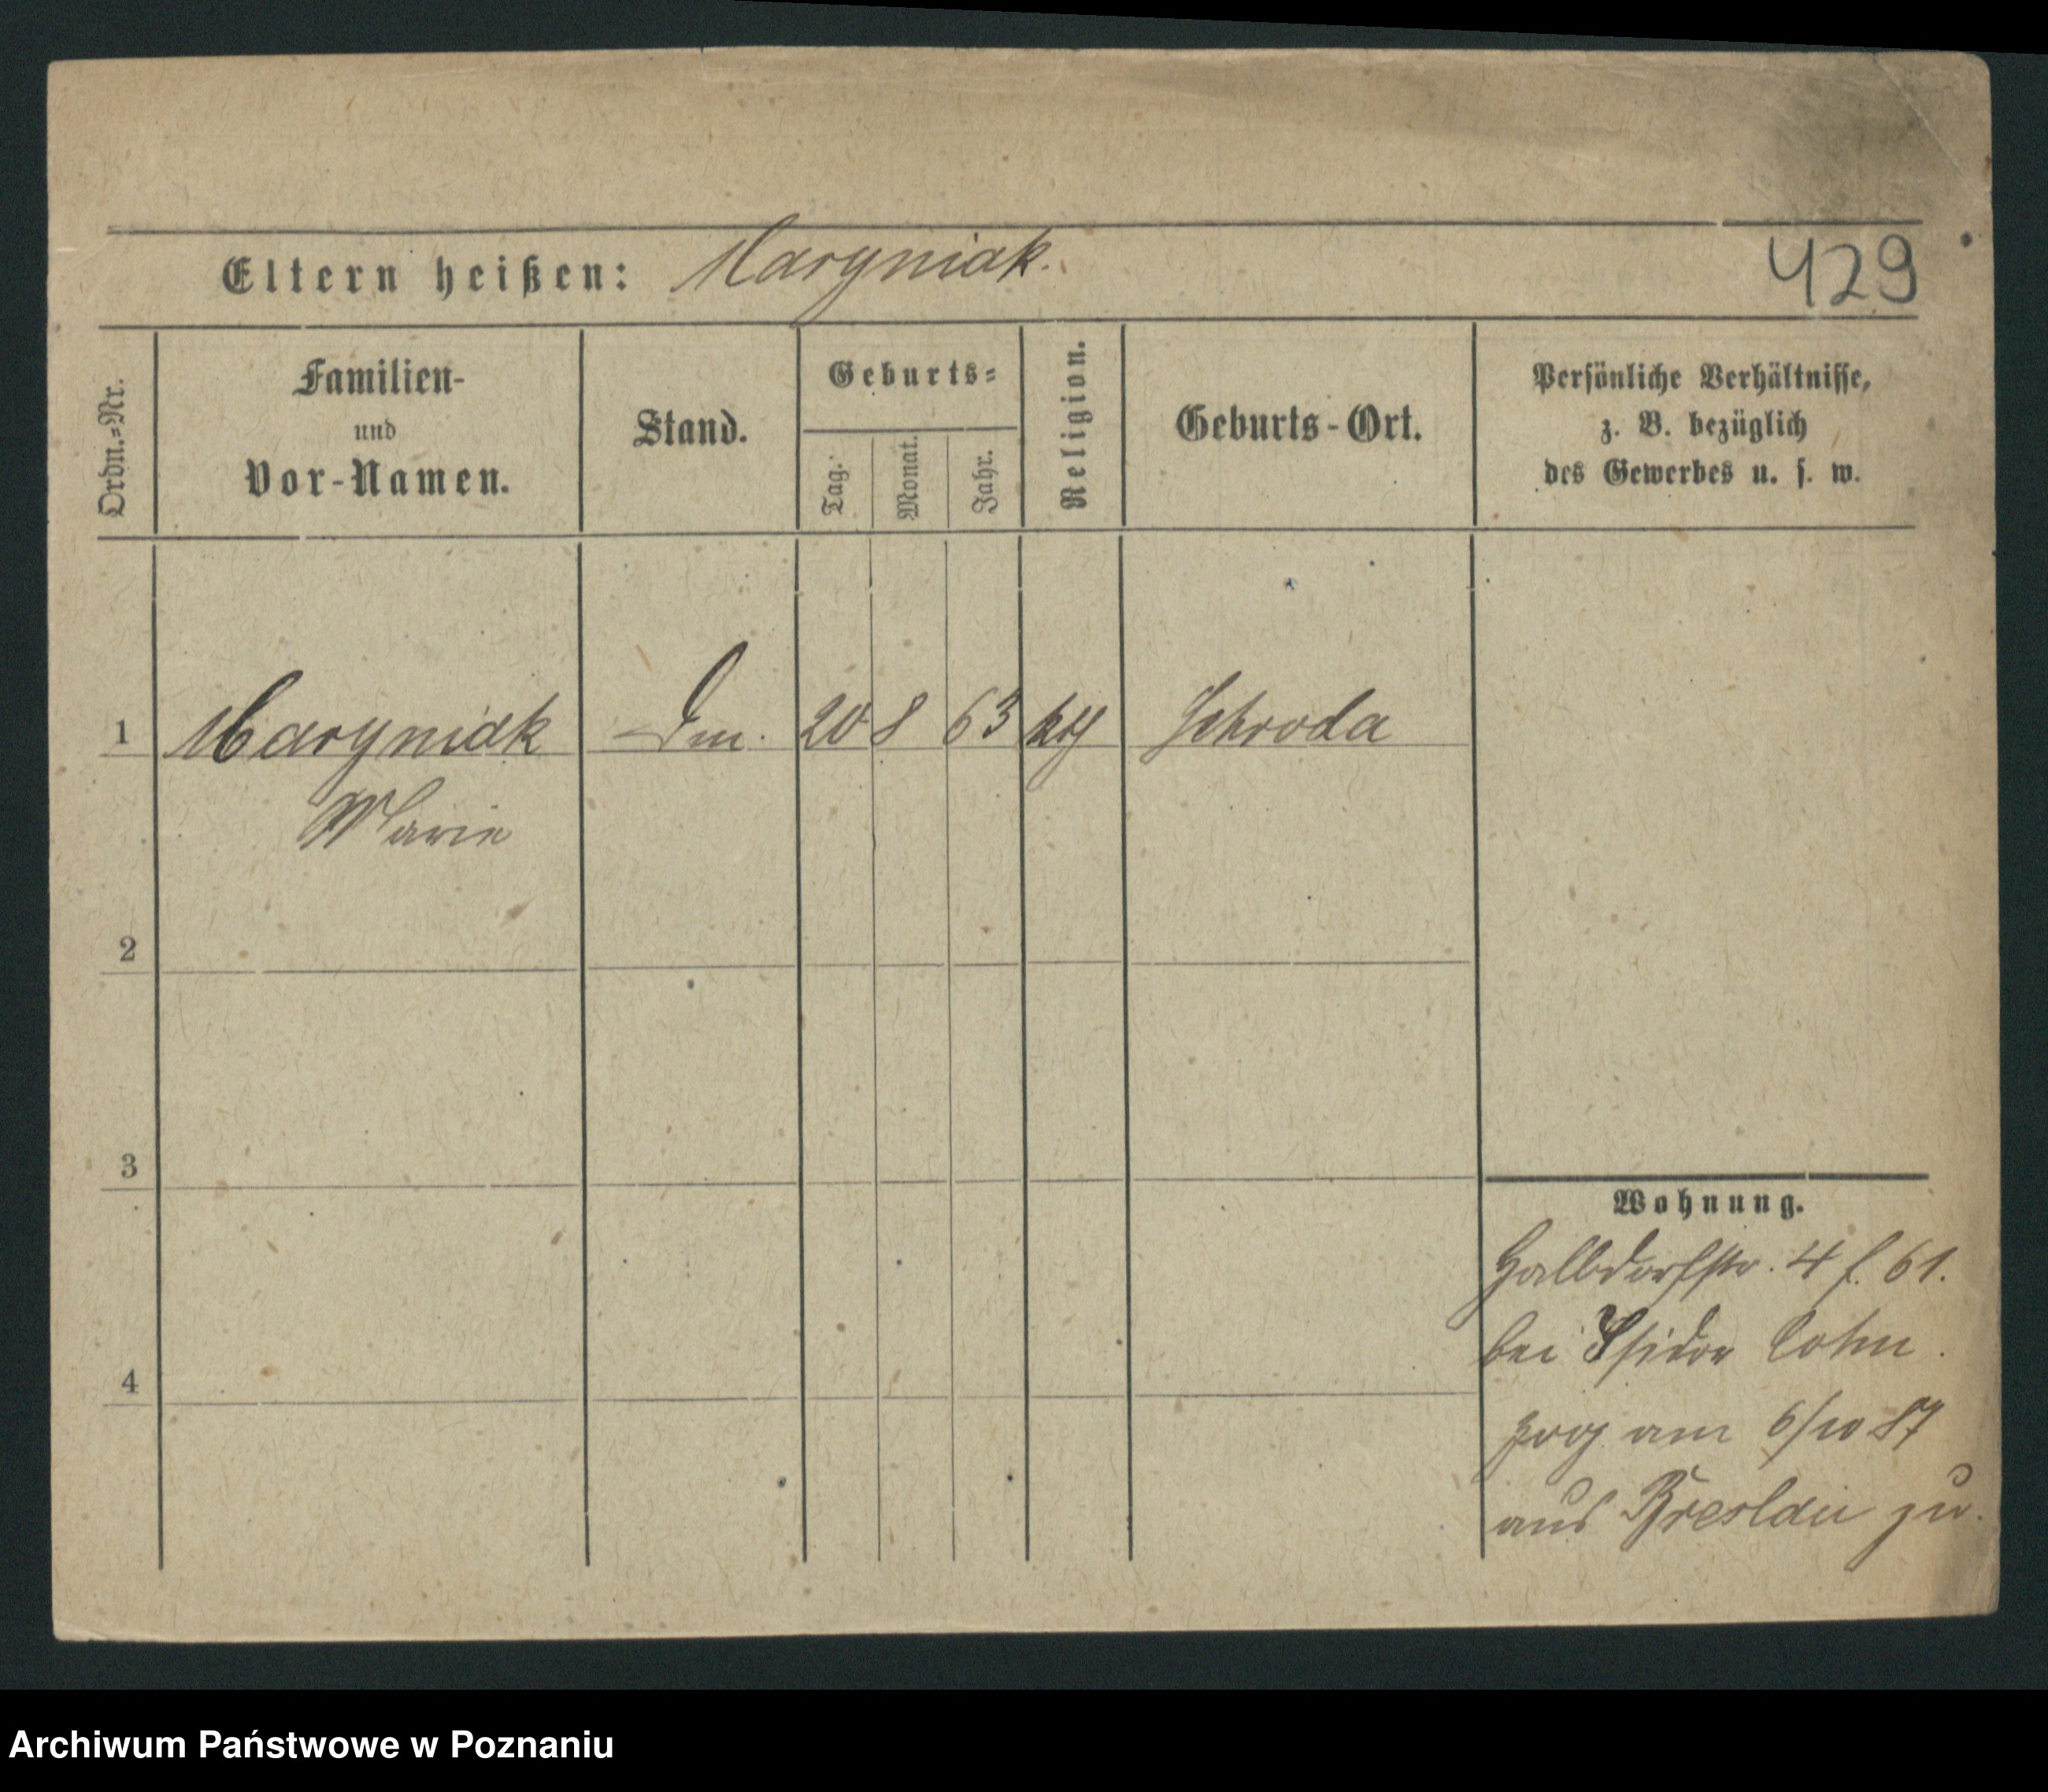 Eltern heißen: Maryniak.
429
Ordn.-Nr.
Familien-
und
Vor-Namen.
Stand.
Geburts-
Tag.
Monat.
Jahr.
Religion.
Geburts-Ort.
Persönliche Verhältnisse,
z. B. bezüglich
des Gewerbes u. s. w.
1 Maryniak 20 8 63 kth Schroda
Marie
2
3
4
Wohnung.
Halbdorfstr. 4 f. 61.
bei Isidor Cohn.
zog am 6/10 87
aus Breslau zu.
Archiwum Państwowe w Poznaniu